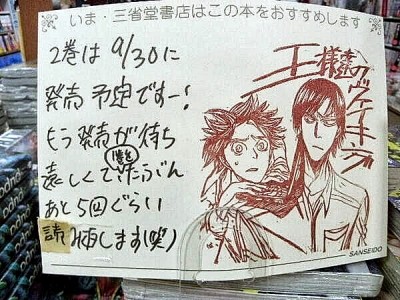 いま・三省堂書店はこの本をおすすめします
2巻は9/30に
発売予定ですー!
もう発売が待ち
遠しくて1巻をたぶん
あと5回ぐらい
読み直します(笑)
王様達のヴァイキング
SANSEIDO